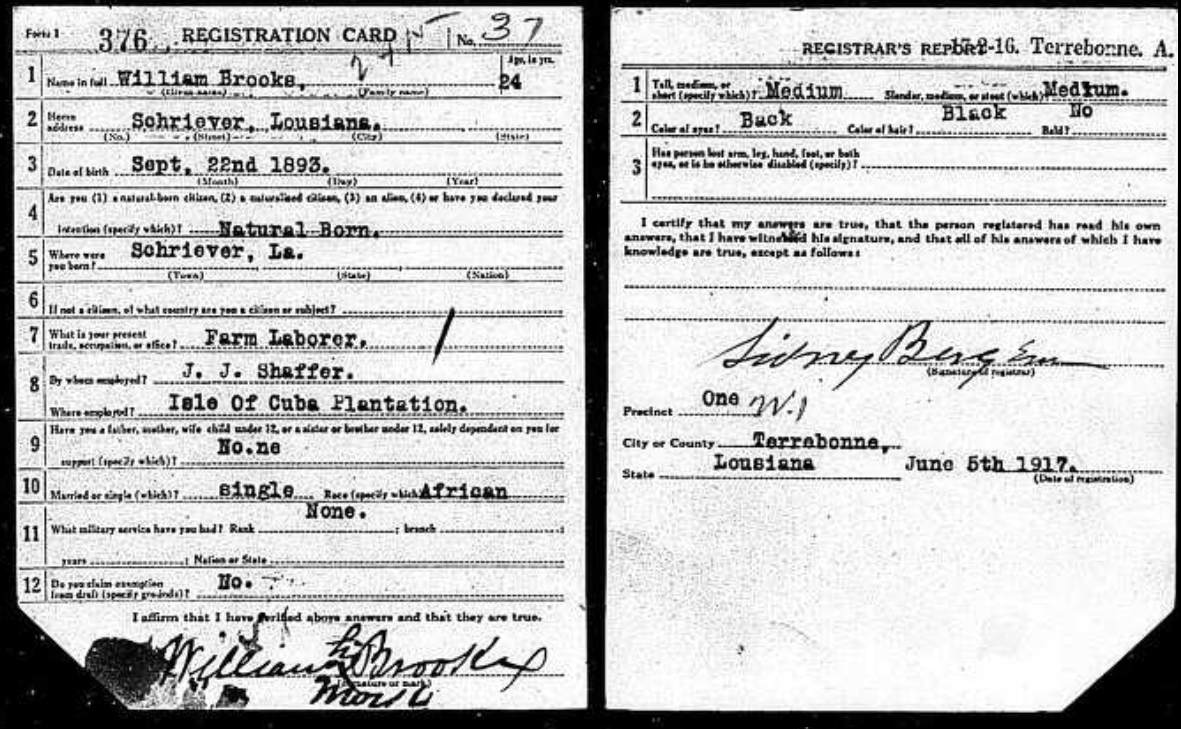 Form 1 376 REGISTRATION CARD No. 37
Age, in yrs.
1 Name in full William Brooks, 24
(Given name) (Family name)
2 Home address Schriever, Lousiana.
(No.) (Street) (City) (State)
3 Date of birth Sept, 22nd 1893.
(Month) (Day) (Year)
4 Are you (1) a natural-born citizen, (2) a naturalized citizen, (3) an alien, (4) or have you declared your
intention (specify which)? Natural Born.
5 Where were you born? Schriever, La.
(Town) (State) (Nation)
6 If not a citizen, of what country are you a citizen or subject?
7 What is your present trade, occupation, or office? Farm Laborer.
8 By whom employed? J. J. Shaffer.
Where employed? Isle Of Cuba Plantation.
9 Have you a father, mother, wife child under 12, or a sister or brother under 12, solely dependent on you for
support (specify which)? No.ne
10 Married or single (which)? single Race (specify which) African
11 What military service have you had? Rank None. ; branch ;
years ; Nation or State
12 Do you claim exemption from draft (specify grounds)? No.
I affirm that I have verified above answers and that they are true.
William Brooks
(Signature or mark)
REGISTRAR'S REPORT 17-2-16. Terrebonne. A.
1 Tall, medium, or short (specify which)? Medium Slender, medium, or stout (which)? Medium.
2 Color of eyes? Back Color of hair? Black Bald? No
3 Has person lost arm, leg, hand, foot, or both
eyes, or is he otherwise disabled (specify)?
I certify that my answers are true, that the person registered has read his own
answers, that I have witnessed his signature, and that all of his answers of which I have
knowledge are true, except as follows:
Sidney Berg
(Signature of registrar)
Precinct One W.1
City or County Terrebonne,
State Lousiana June 5th 1917.
(Date of registration)